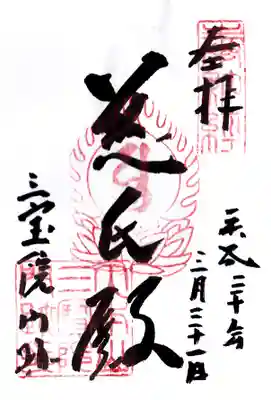 奉拝
平成二十
三月三十一日
慈氏殿
三宝院門跡